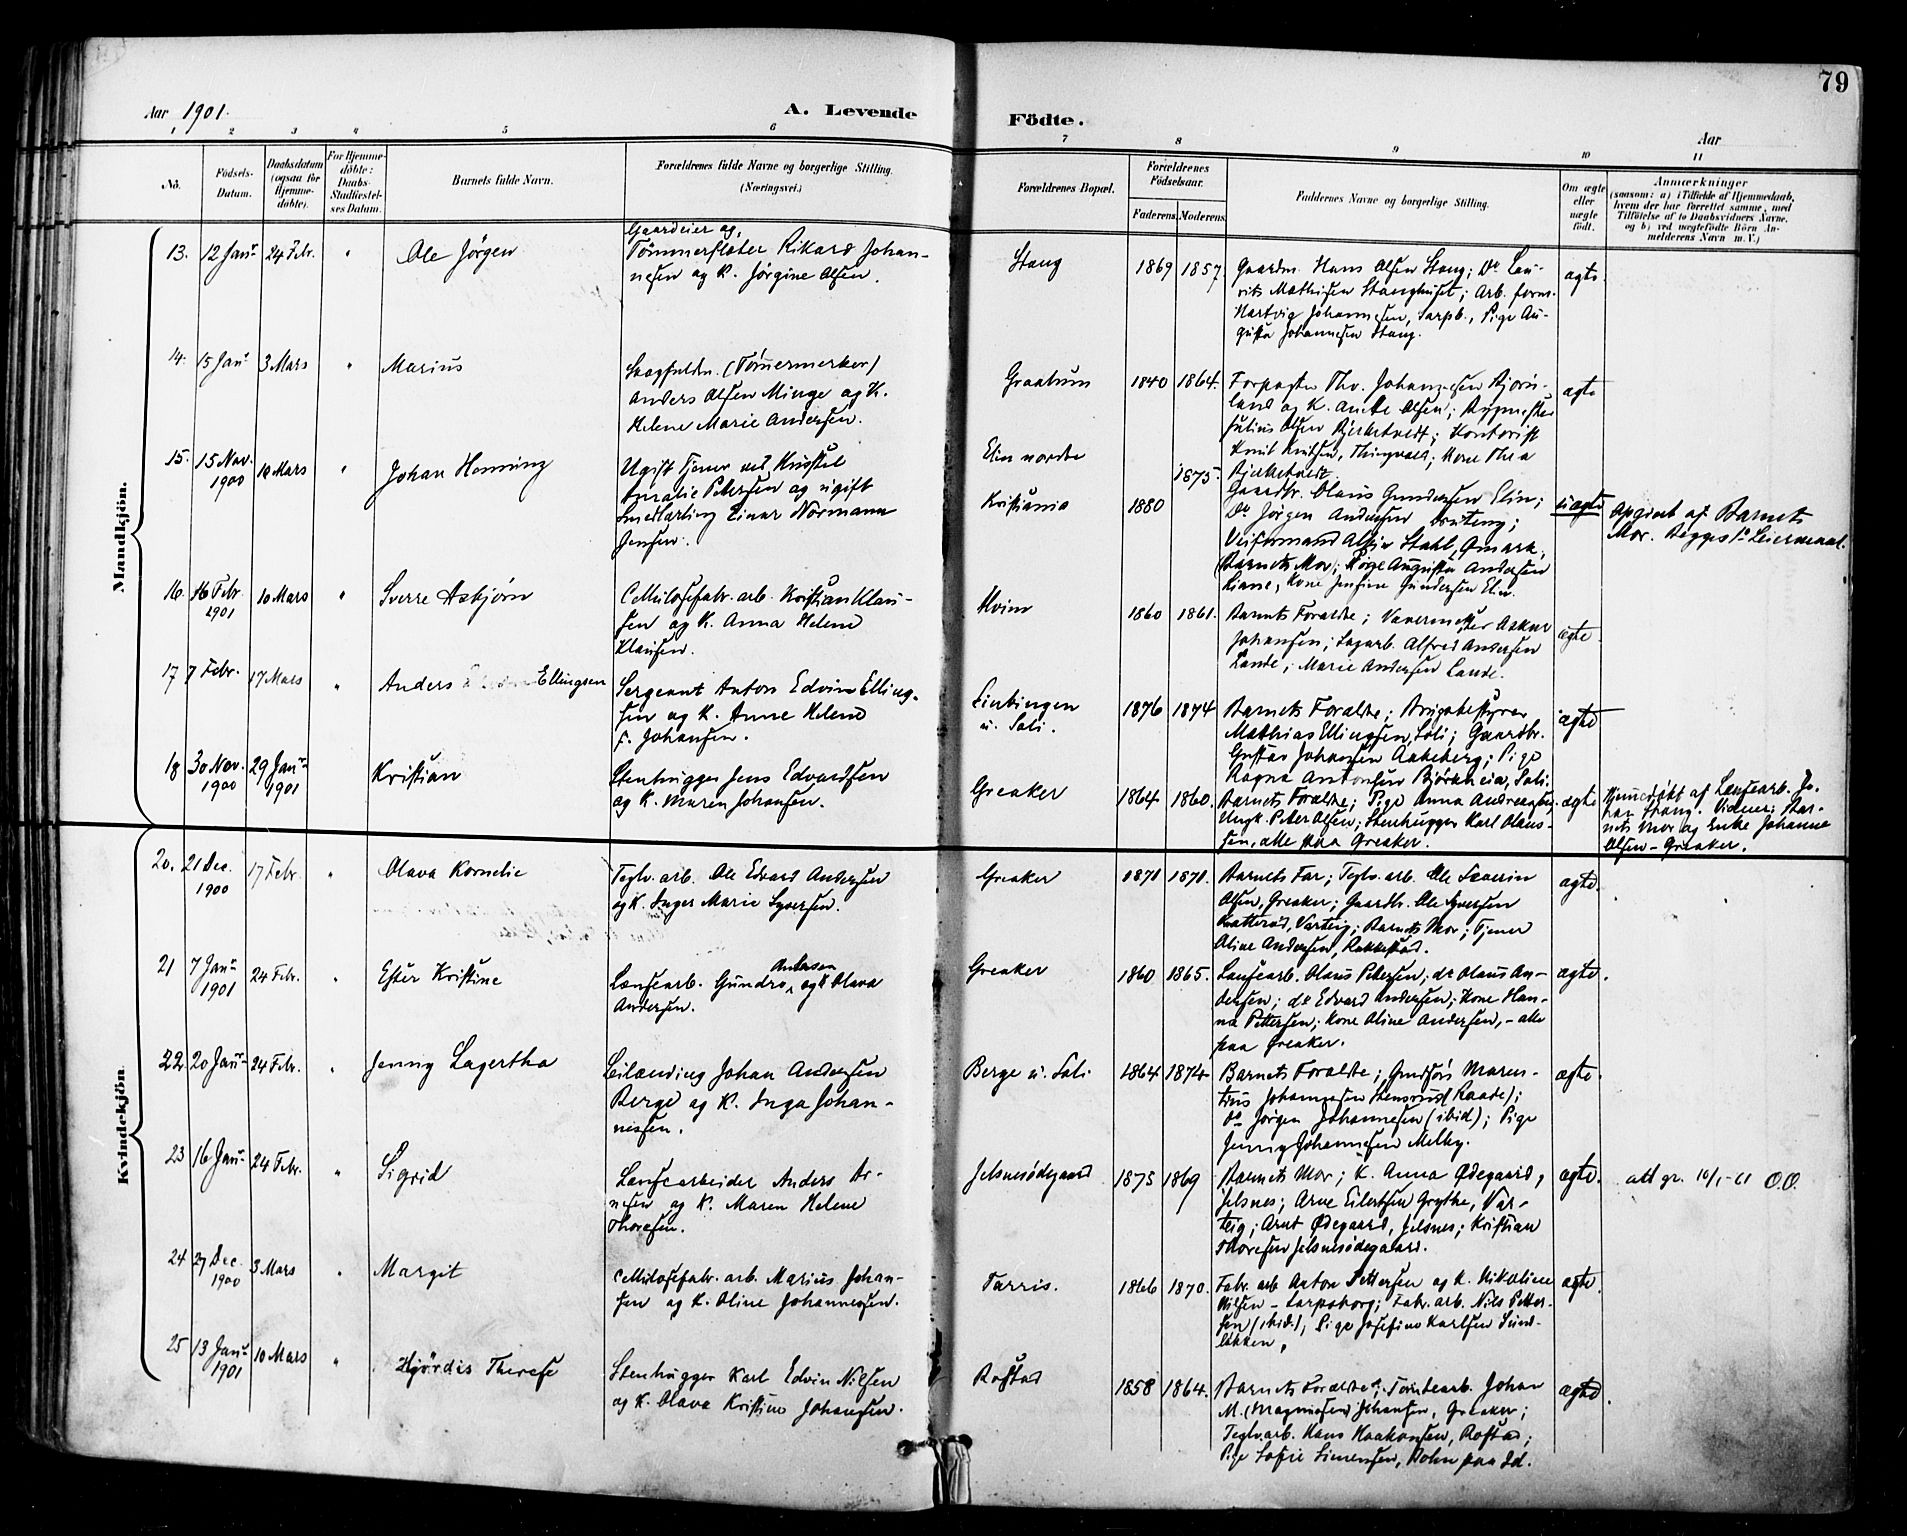 79
Aar 1901.
A. Levende
Födte.
Aar
1 2 3 4 5 6 7 8 9 10 11
No.
Födsels-
Datum.
Daabsdatum
(ogsaa for
Hjemme-
döbte).
For Hjemme-
döbte:
Daabs-
Stadfæstel-
ses Datum.
Barnets fulde Navn.
Forældrenes fulde Navne og borgerlige Stilling.
(Næringsvei.)
Forældrenes Bopæl.
Forældrenes
Födselsaar.
Faderens. Moderens.
Faddernes Navne og borgerlige Stilling.
Om ægte
eller
uægte
født.
Anmærkninger
(saasom: a) i Tilfælde af Hjemmedaab,
hvem der har forrettet samme, med
Tilföielse af to Daabsvidners Navne,
og b) ved uægtefödte Börn An-
melderens Navn m. V.)
Mandkjön.
13. 12 Janr 24 Febr. " Ole Jörgen
Gaardeier og
Tömmerfløter Rikard Johan-
nesen og K. Jörgine Olsen.
Stang 1869 1857.
Gaardm. Hans Olsen Stang; Do Lau-
rits Mathisen Stanghuset; Arb. form.
Hartvig Johannesen, Sarpb., Pige Au-
gusta Johannesen Stang.
ægte.
14. 15 Janr 3 Mars " Marius
Saugfuldm. (Tömermerker)
Anders Olsen Minge og K.
Helene Marie Andersen.
Graatum 1840 1864.
Forpagter Thv. Johannesen Bjørn-
land og K. Anette Olsen; Bygmester
Julius Olsen Bjerketvedt; Kontorist
Knut Knutsen, Thingvold; Kone Thea
Bjerketvedt
ægte
15. 15 Nov. 1900 10 Mars " Johan Henning
Ugift Tjener ved Krusetul
Amalie Petersen og ugift
Smedlærling Einar Normann
Jensen.
Elin nordre
Kristiania 1880 1875.
Gaardbr. Olaus Gundersen Elin;
Do Jörgen Andersen
Veiformand Stahl, Omark,
Barnets Mor; Pige Augusta Andersen
Liane, Kone Jensine Gundersen Elin.
uægte
Opgivet af Barnets
Mor. Begges 1ste Leiermaal.
16. 16 Febr 1901 10 Mars " Sverre Asbjørn
Cellulosefabr. arb. Kristian Klau-
sen og K. Anna Helene
Klausen.
Hvim 1860 1861.
Barnets Forældre; Vævermester Oskar
Johansen; Sagarb. Alfred Andersen
Lande; Marie Andersen Lande.
ægte.
17 7 Febr. 17 Mars " Anders Ellingsen
Sergeant Anton Edvin Elling-
sen og K. Anne Helene
f. Johansen.
Lintingen
u. Soli. 1876 1874
Barnets Forældre; Brugsbestyrer
Mathias Ellingsen, Soli; Gaardbr.
Gustav Johansen Aakeberg; Pige
Ragna Antonsen Bjørkheia, Soli.
ægte
18 30 Nov. 1900 29 Janr 1901 Kristian
Stenhugger Jens Edvardsen
og K. Maren Johansen.
Greaker 1864 1860.
Barnets Forældre; Pige Anna Andreassen,
Ungk. Peter Olsen; Stenhugger Karl Olaus-
sen, alle paa Greaker.
ægte
Hjemedøbt af Lænsearb. Jo-
han Stang. Vidner: Bar-
nets Mor og Enke Johanne
Olsen - Greaker.
Kvindekjön.
20. 21 Dec. 1900 17 Febr. " Olava Kornelie
Teglv. arb. Ole Edvard Andersen
og K. Inger Marie Syversen.
Greaker 1871 1871.
Barnets Far; Teglv. arb. Ole Severin
Olsen, Greaker; Gaardbr. Ole Syversen
Ratterød, Varteig; Barnets Mor; Tjener
Aline Andersen, Rakkestad.
ægte.
21 7 Janr 1901 24 Febr. " Ester Kristine
Lænsearb. Gundro Andersen og K. Olava
Andersen.
Greaker 1860 1865.
Lænsearb. Olaus Petersen; do Olaus An-
dersen; do Edvard Andersen; Kone Han-
na Pettersen; Kone Aline Andersen, - alle
paa Greaker.
ægte.
22. 20 Janr 24 Febr. " Jenny Lagertha
Leilænding Johan Andersen
Berge og K. Inga Johan-
nessen.
Berge u. Soli 1864 1874
Barnets Forældre; Gmdsøn Maren-
tius Johannesen Stensrud (Raade);
do Jörgen Johannesen (ibid); Pige
Jenny Johannesen Melby.
ægte.
23 16 Janr 24 Febr. " Sigrid
Lænsearbeider Anders Ar-
nesen og K. Maren Helene
Thoresen.
Jelsnesødegaard 1875 1869
Barnets Mor; K. Anna Ødegaard,
Jelsnes; Arne Eilertsen Grythe, Var-
teig; Arnt Ødegaard, Jelsnes; Kristian
Thoresen Jelsnesødegaard.
ægte.
att gr. 10/1-61 O.O.
24 27 Dec. 1900 3 Mars " Margit
Cellulosefabr. arb. Marius Johan-
sen og K. Oline Johannesen.
Tarris. 1866 1870.
Fabr. arb Anton Pettersen og K. Nikoline
Nilsen - Sarpsborg; Fabr. arb. Nils Petter-
sen (ibid.), Pige Josefine Karlsen Sund-
løkken.
ægte.
25 13 Janr 1901 10 Mars " Hjördis Therese
Stenhugger Karl Edvin Nilsen
og K. Olava Kristine Johansen.
Rostad 1858 1864.
Barnets Forældre; Tomtearb. Johan
M. (Magnussen) Johansen, Greaker;
Teglv. arb. Hans Haakonsen, Rostad;
Pige Sofie Simensen, Holm paa Id.
ægte.